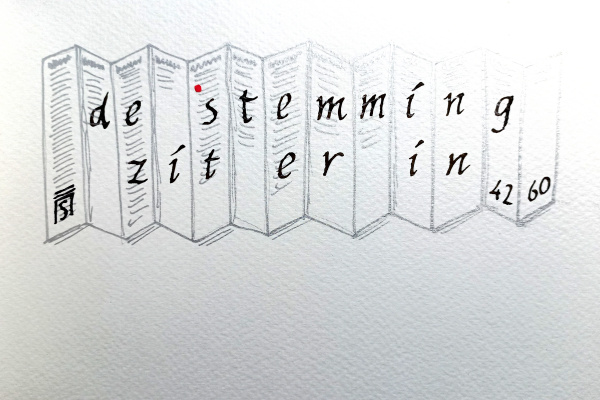 de stemming
zit er in
42 60